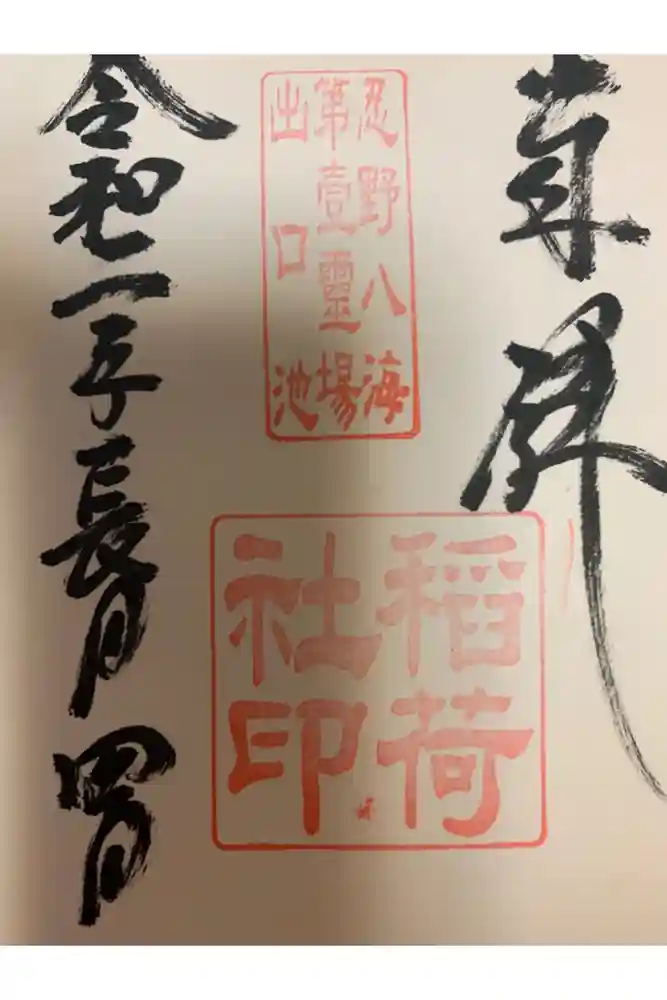 奉拝
忍野八海
第壹靈場
出口池
稲荷
社印
令和二年長月四日